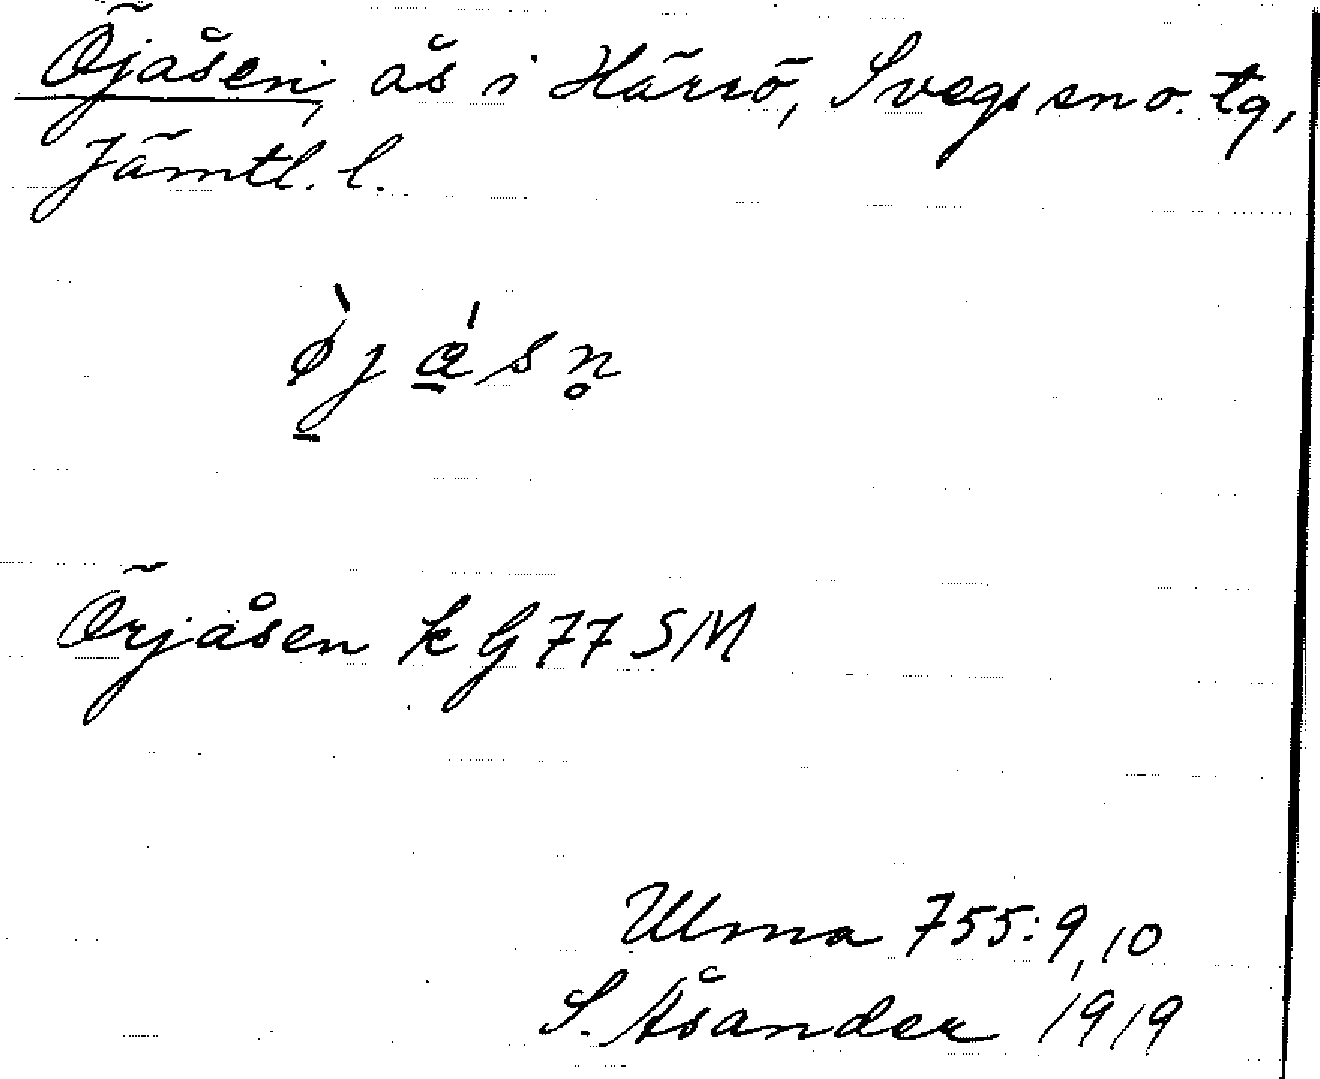 Öjåsen, ås i Härrö, Svegs sn o. tg,
Jämtl. l.
Örjåsen k G 77 SM
Ulma 755:9,10
S. Åsander 1919